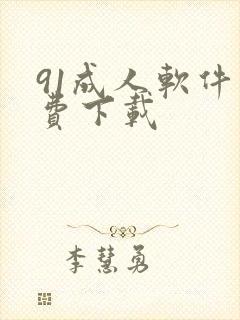 91成人軟件
費下載
李慧勇